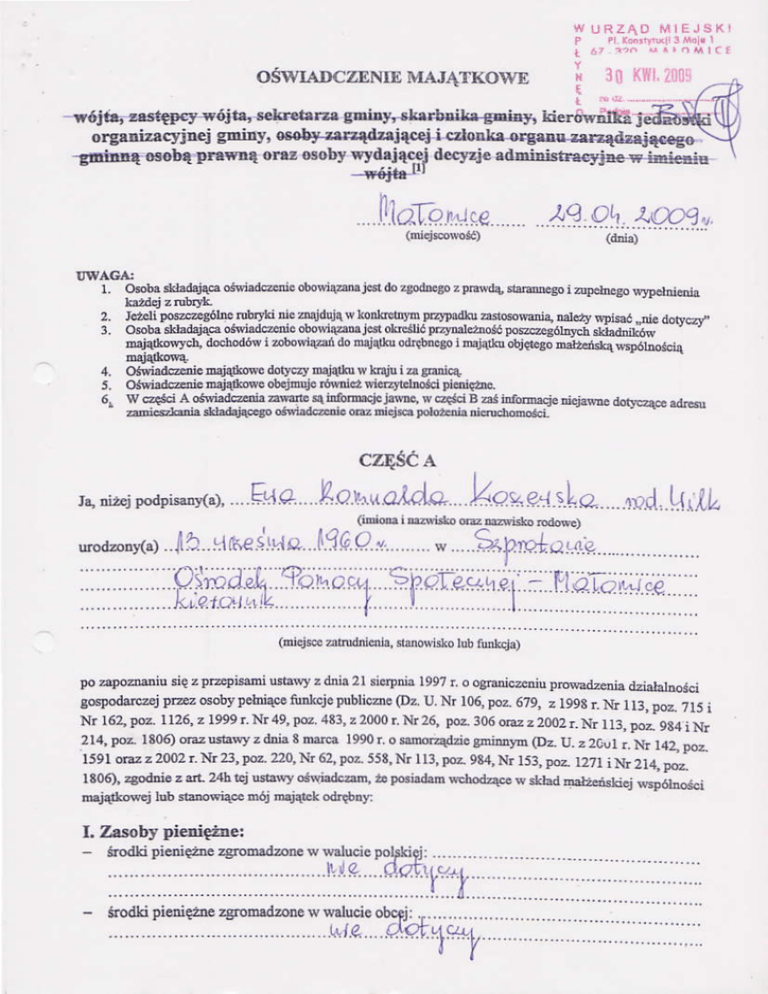 WPŁYNĘŁO
URZĄD MIEJSKI
Pl. Konstytucji 3 Maja 1
67-320 MAŁOMICE
30 KWI. 2009
OŚWIADCZENIE MAJĄTKOWE
wójta, zastępcy wójta, sekretarza gminy, skarbnika gminy, kierownika jednostki
organizacyjnej gminy, osoby zarządzającej i członka organu zarządzającego
gminną osobą prawną oraz osoby wydającej decyzje administracyjne w imieniu
wójta [1]
Małomice 29.04.2009r.
(miejscowość) (dnia)
UWAGA:
1. Osoba składająca oświadczenie obowiązana jest do zgodnego z prawdą, starannego i zupełnego wypełnienia
każdej z rubryk.
2. Jeżeli poszczególne rubryki nie znajdują w konkretnym przypadku zastosowania, należy wpisać „nie dotyczy”
3. Osoba składająca oświadczenie obowiązana jest określić przynależność poszczególnych składników
majątkowych, dochodów i zobowiązań do majątku odrębnego i majątku objętego małżeńską wspólnością
majątkową.
4. Oświadczenie majątkowe dotyczy majątku w kraju i za granicą.
5. Oświadczenie majątkowe obejmuje również wierzytelności pieniężne.
6. W części A oświadczenia zawarte są informacje jawne, w części B zaś informacje niejawne dotyczące adresu
zamieszkania składającego oświadczenie oraz miejsca położenia nieruchomości.
CZĘŚĆ A
Ja, niżej podpisany(a), Ewa Romualda Kosewska rod. Wilk
(imiona i nazwisko oraz nazwisko rodowe)
urodzony(a) 13 września 1960r. w Szprotawie
Ośrodek Pomocy Społecznej - Małomice
kierownik
(miejsce zatrudnienia, stanowisko lub funkcja)
po zapoznaniu się z przepisami ustawy z dnia 21 sierpnia 1997 r. o ograniczeniu prowadzenia działalności
gospodarczej przez osoby pełniące funkcje publiczne (Dz. U. Nr 106, poz. 679, z 1998 r. Nr 113, poz. 715 i
Nr 162, poz. 1126, z 1999 r. Nr 49, poz. 483, z 2000 r. Nr 26, poz. 306 oraz z 2002 r. Nr 113, poz. 984 i Nr
214, poz. 1806) oraz ustawy z dnia 8 marca 1990 r. o samorządzie gminnym (Dz. U. z 2001 r. Nr 142, poz.
1591 oraz z 2002 r. Nr 23, poz. 220, Nr 62, poz. 558, Nr 113, poz. 984, Nr 153, poz. 1271 i Nr 214, poz.
1806), zgodnie z art. 24h tej ustawy oświadczam, że posiadam wchodzące w skład małżeńskiej wspólności
majątkowej lub stanowiące mój majątek odrębny:
I. Zasoby pieniężne:
– środki pieniężne zgromadzone w walucie polskiej:
nie dotyczy
– środki pieniężne zgromadzone w walucie obcej:
nie dotyczy